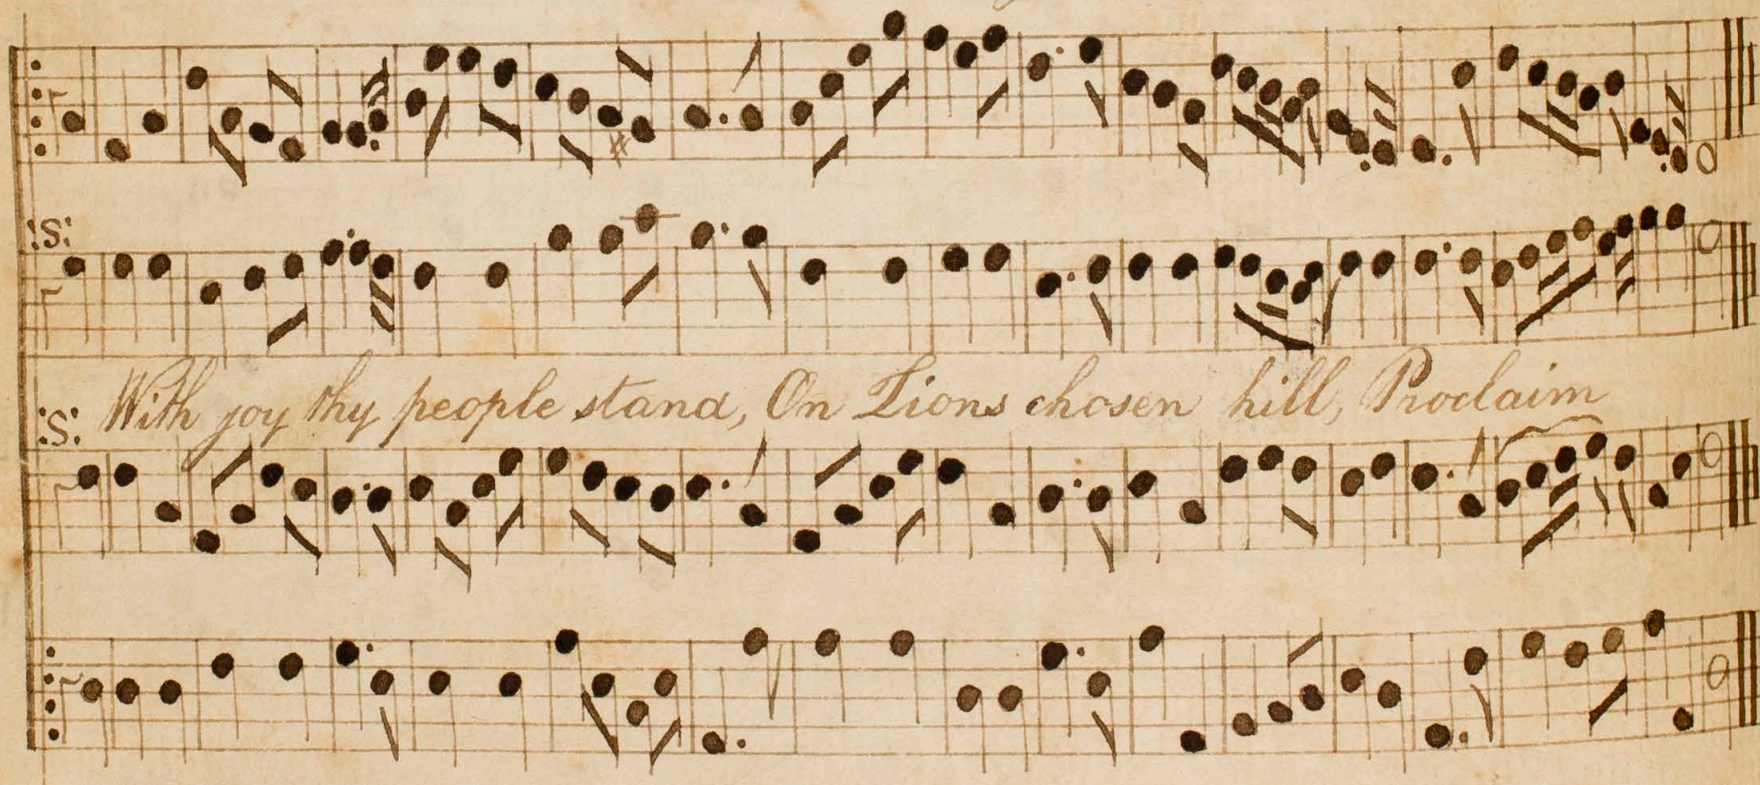 :S:
With joy thy people stand, On Zions chosen hill, Proclaim
:S: